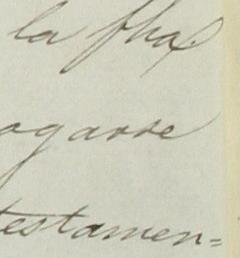 la fha
ogarse
testamen=